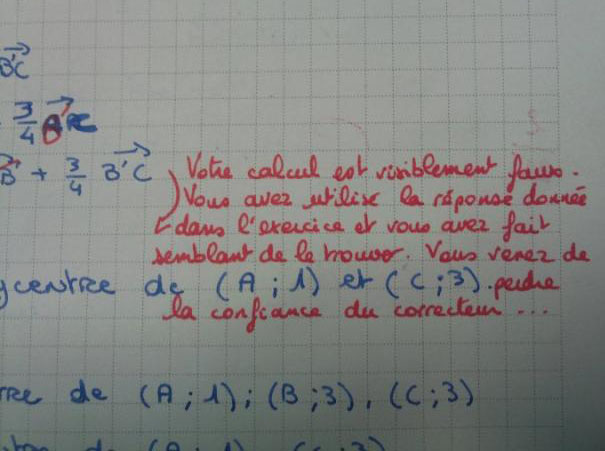 B'C
3/4 B'C
B' + 3/4 B'C
Votre calcul est visiblement faux.
Vous avez utilisé la réponse donnée
dans l'exercice et vous avez fait
semblant de le trouver. Vous venez de
ycentre de (A ; 1) et (C ; 3). perdre
la confiance du correcteur ...
tre de (A ; 1) ; (B ; 3), (C ; 3)